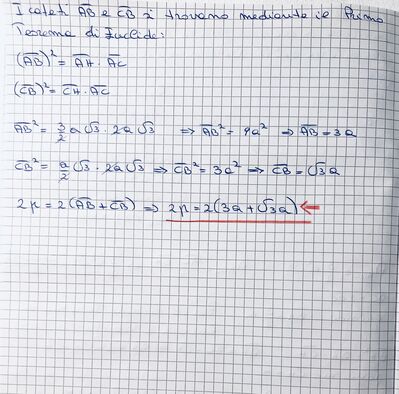 I cateti A̅B̅ e C̅B̅ si trovano mediante il Primo
Teorema di Euclide:
(A̅B̅)² = A̅H̅ · A̅C̅
(C̅B̅)² = C̅H̅ · A̅C̅
A̅B̅² = 3/2 a√3 · 2a√3 ⇒ A̅B̅² = 9a² ⇒ A̅B̅ = 3a
C̅B̅² = a/2 √3 · 2a√3 ⇒ C̅B̅² = 3a² ⇒ C̅B̅ = √3a
2p = 2(A̅B̅ + C̅B̅) ⇒ 2p = 2(3a + √3a) ←